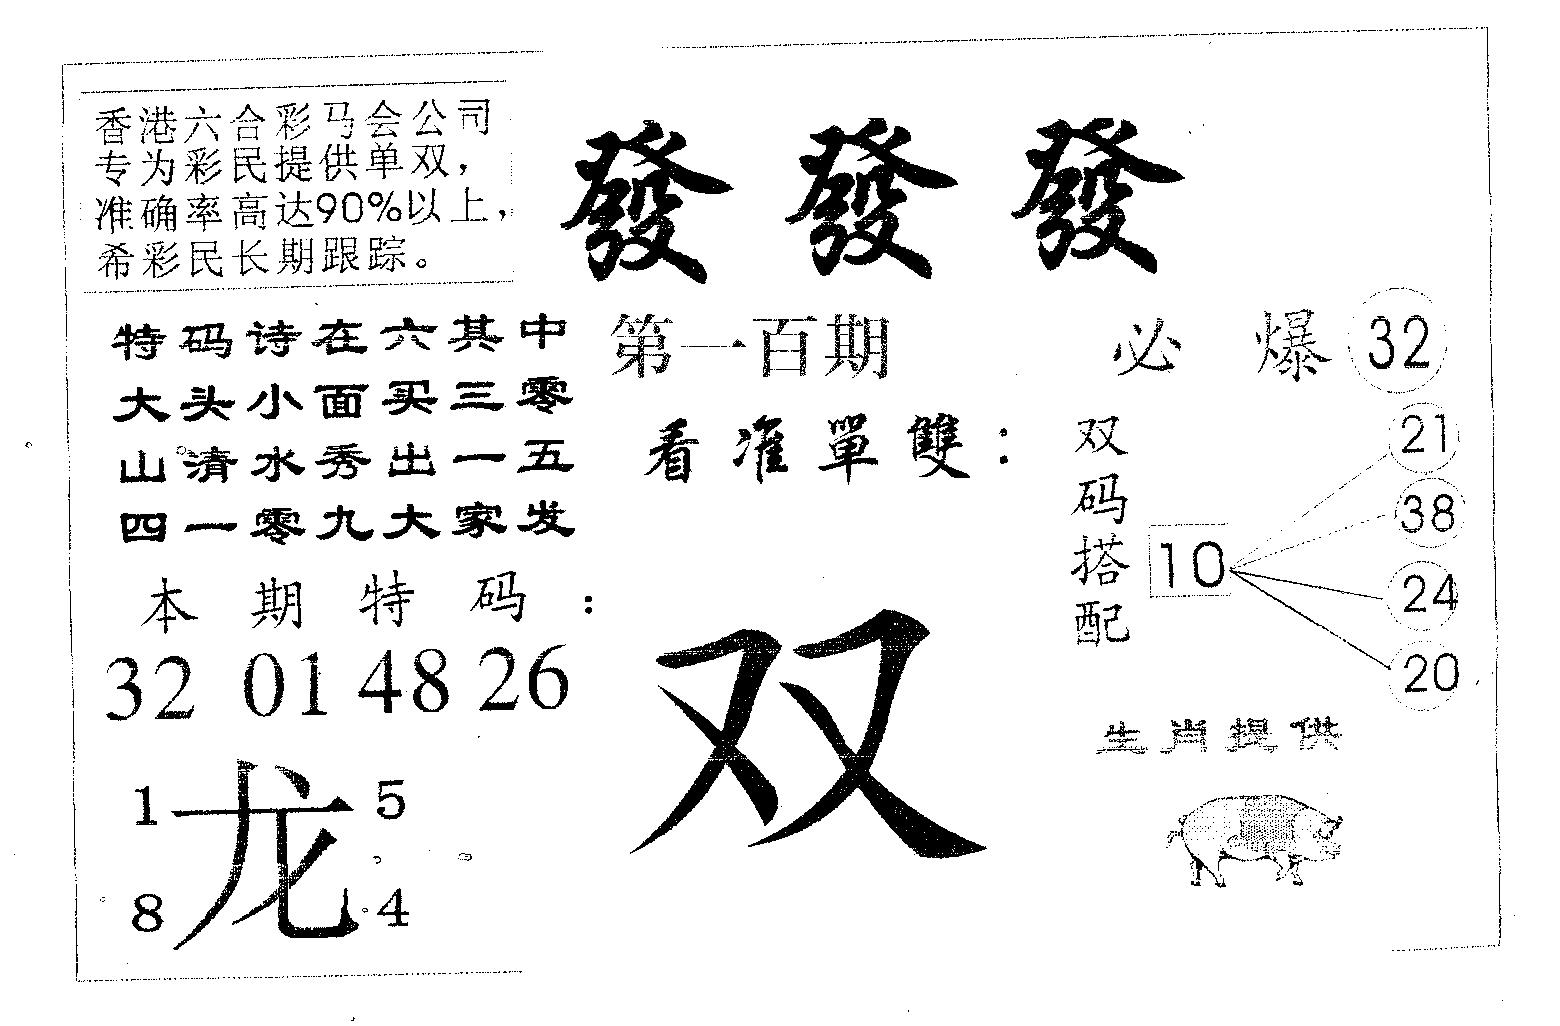 香港六合彩马会公司
专为彩民提供单双，
准确率高达90%以上，
希彩民长期跟踪。
發 發 發
特码诗在六其中
大头小面买三零
山清水秀出一五
四一零九大家发
第一百期
看准單雙：
必 爆 32
双码搭配
10
21
38
24
20
本期特码：
32 01 48 26
双
1 龙 5
8 4
生肖提供